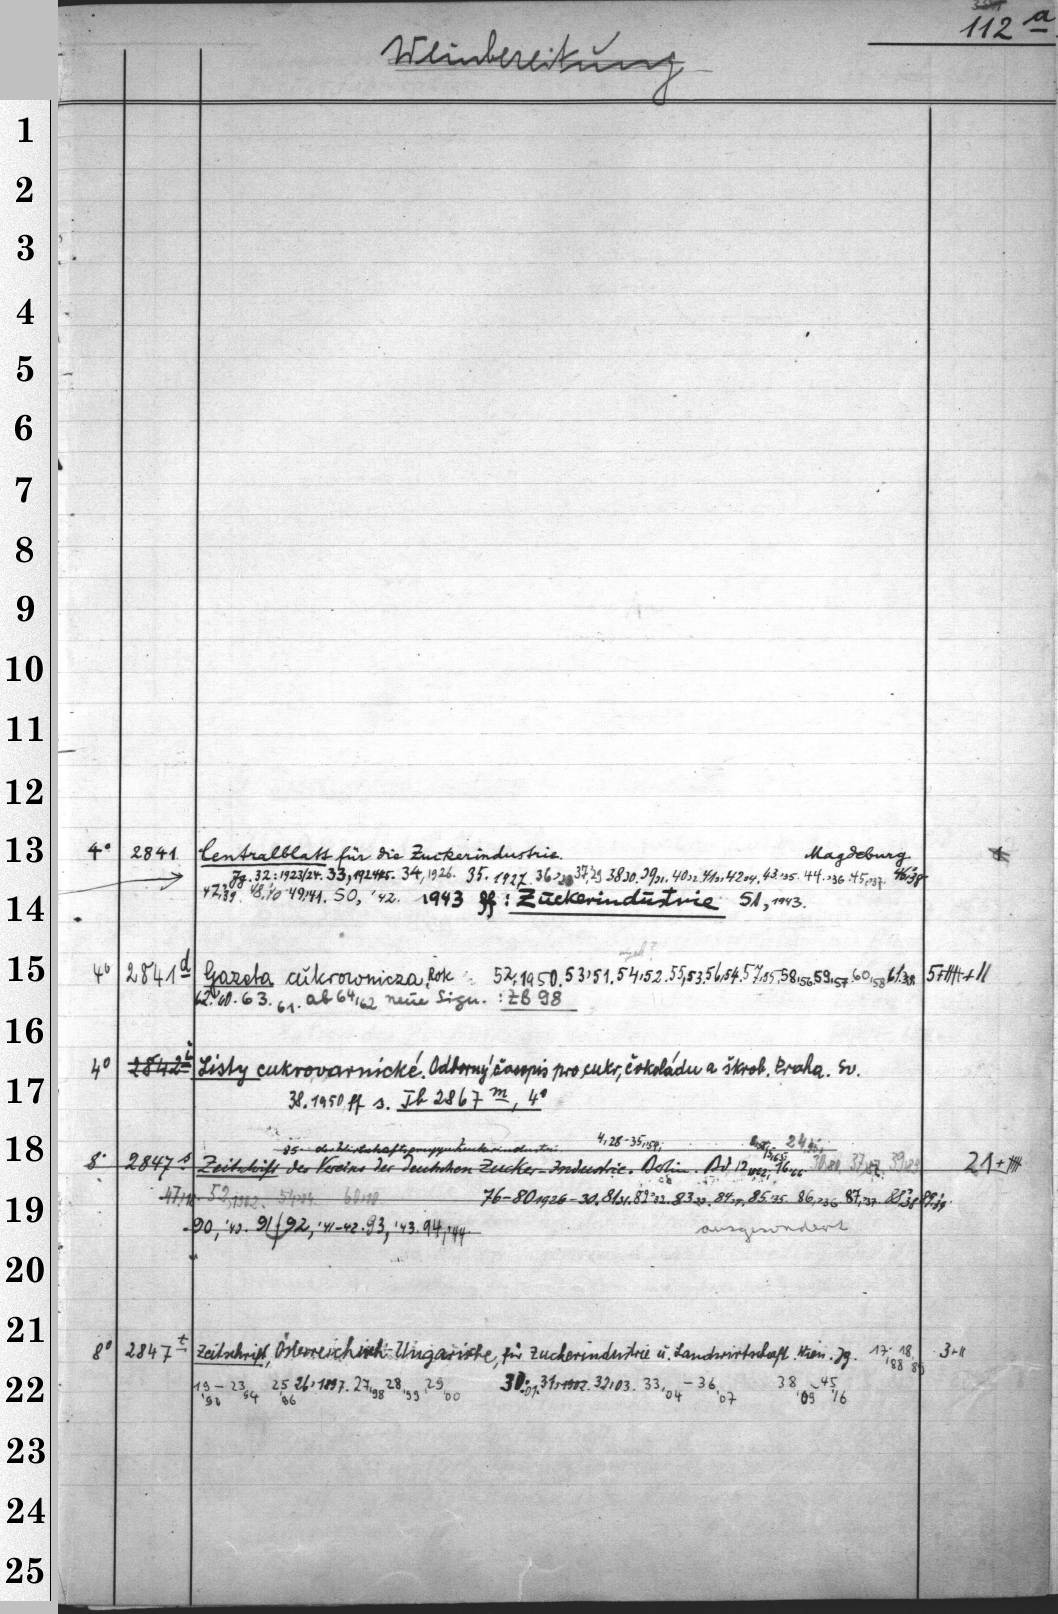 112 a
Weinbereitung
1
2
3
4
5
6
7
8
9
10
11
12
13 4° 2841 Centralblatt für die Zuckerindustrie. Magdeburg
Jg. 32:1923/24. 33,1924/25. 34,1926. 35.1927 36,28 37,29 38,30. 39,31. 40,32. 41,33. 42,34. 43,35. 44,36. 45,37. 46,38
14 47,39. 48,40 49,41. 50, '42. 1943 ff: Zuckerindustrie 51, 1943.
15 4° 2841 d Gazeta cukrownicza. Rok 52,1950. 53,51. 54,52. 55,53. 56,54. 57,55. 58,56. 59,57. 60,58. 61,59 5+IIII+II
62,'60. 63,61. ab 64,62 neue Sign.: ZB 98
16
4° 2842 i Listy cukrovarnické. Odborný časopis pro cukr, čokoládu a škrob. Praha. Sv.
17 38.1950 ff s. Ib 2867 m, 4°
18 85- der Wirtschaftsgruppe Zuckerindustrie 4, 28-35, 24
8° 2847 s Zeitschrift des Vereins der Deutschen Zucker-Industrie. Berlin. Bd 12, 16,66 21+IIII
19 47, 52,1902. 54,04. 60,10 76-80 1926-30. 81,31. 82,32. 83,33. 84,34. 85,35 86,36 87,37 88,38 89,39.
90, '40. 91/92, '41-42. 93, '43. 94, '44
ausgesondert
20
21 8° 2847 t Zeitschrift, Österreichisch-Ungarische, für Zuckerindustrie u. Landwirtschaft. Wien. Jg. 17,'88 18,'89 3+II
22 19-23,'94 25,'96 26,1897. 27,'98 28,'99 29,'00 30,01. 31,1902. 32,03. 33,'04 - 36,'07 38,'09 - 45,'16
23
24
25